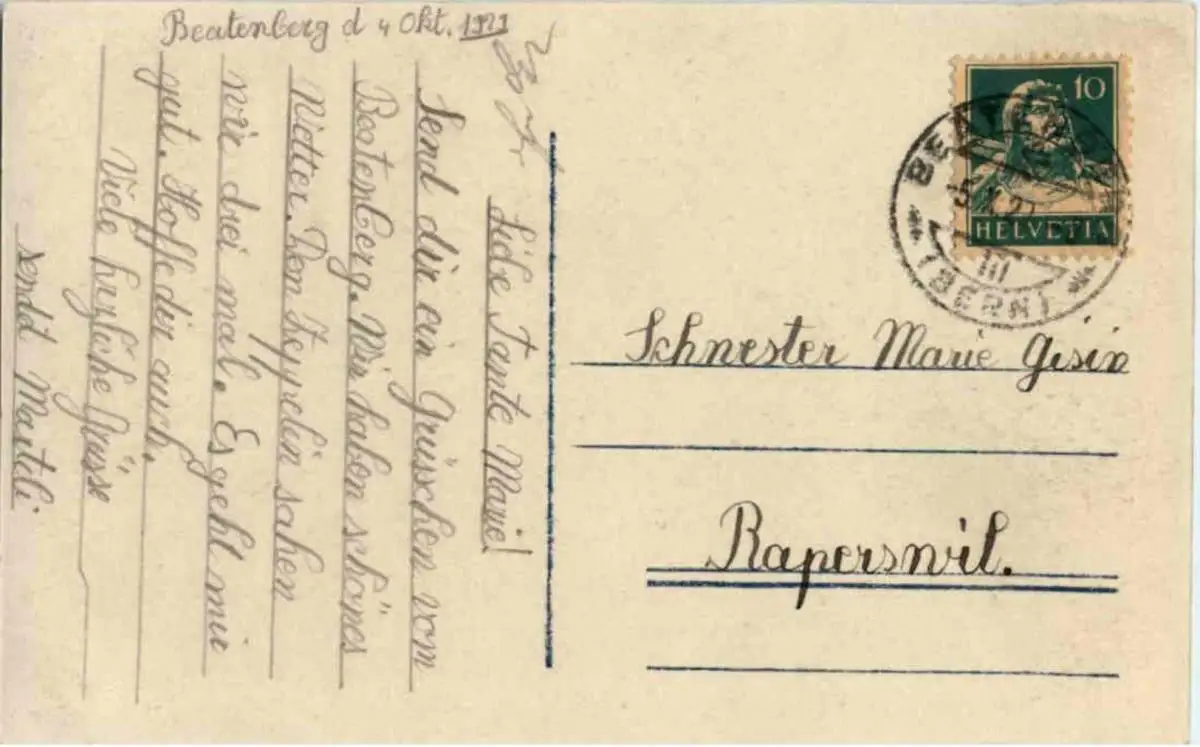 Beatenberg d 4 Okt. 1929
Liebe Tante Marie!
Send dir ein Grüsschen vom
Beatenberg. Wir haben schönes
Wetter. Dem Zeppelin sahen
wir drei mal. Es geht mir
gut. Hoffe dir auch.
Viele herzliche Grüsse
sendd Mautili
10
HELVETIA
(BERN)
III
Schwester Marie Gisin
Raperswil.